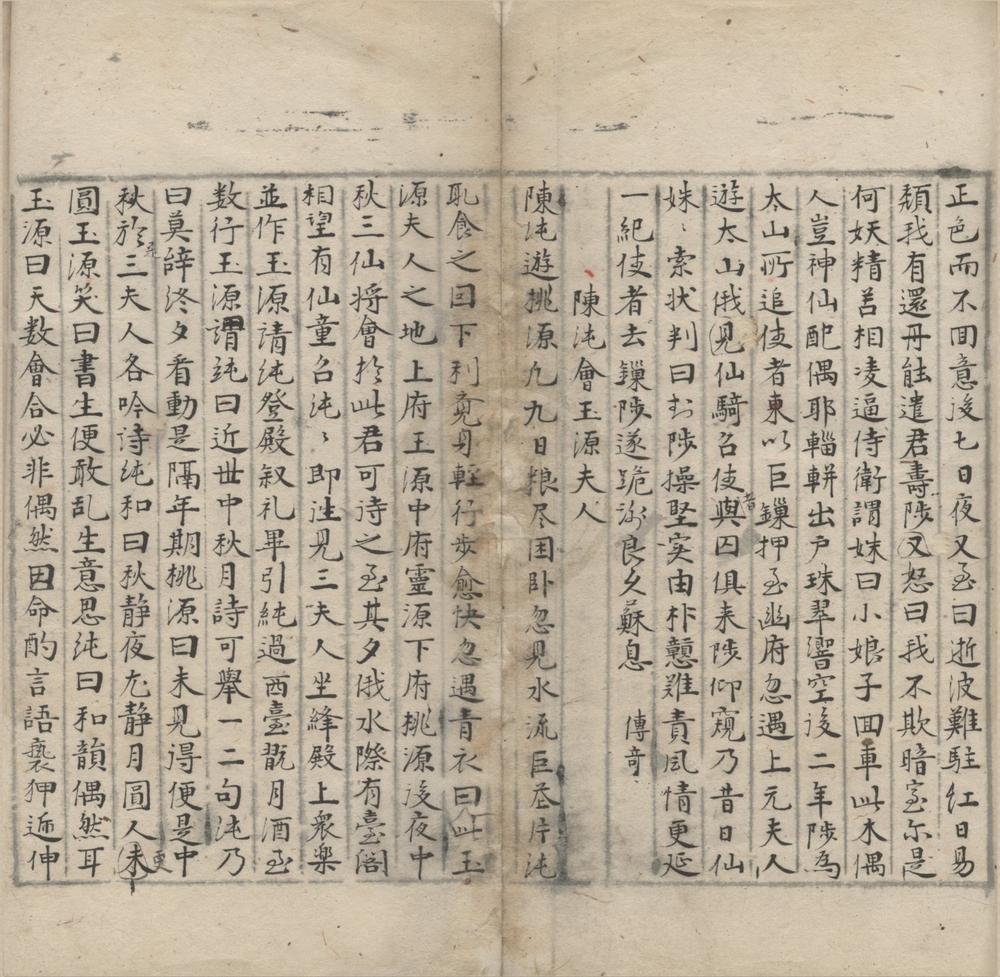 正色而不回意後七日夜又至曰逝波難駐紅日易
頹我有還丹能遣君壽陟又怒曰我不欺暗室尔是
何妖精苦相凌逼侍衛謂姝曰小娘子回車此木偶
人豈神仙配偶耶輜軿出戶珠翠響空後二年陟為
太山所追使者束以巨鏁押至幽府忽遇上元夫人
遊太山俄見仙騎召使者與囚俱来陟仰窺乃昔日仙
姝〻索状判曰封陟操堅实由朴戇難責風情更延
一紀使者去鏁陟遂跪謝良久蘇息 傳奇
陳沌會玉源夫人
陳沌遊桃源九九日粮尽困卧忽見水流巨花片沌
取食之因下利寛身輕行步愈快忽遇青衣曰此玉
源夫人之地上府玉源中府靈源下府桃源後夜中
秋三仙将會於此君可詩之至其夕俄水際有臺閣
相望有仙童召沌〻即往見三夫人坐絳殿上衆樂
並作玉源請純登殿叙礼畢引純過西臺翫月酒至
数行玉源謂純曰近世中秋月詩可舉一二句沌乃
曰莫辞終夕看動是隔年期桃源曰未見得便是中
秋於是三夫人各吟诗纯和曰秋静夜尤静月圓人未更
圓玉源笑曰書生便敢乱生意思纯曰和韻偶然耳
玉源曰天数會合必非偶然因命酌言語褻狎逓伸